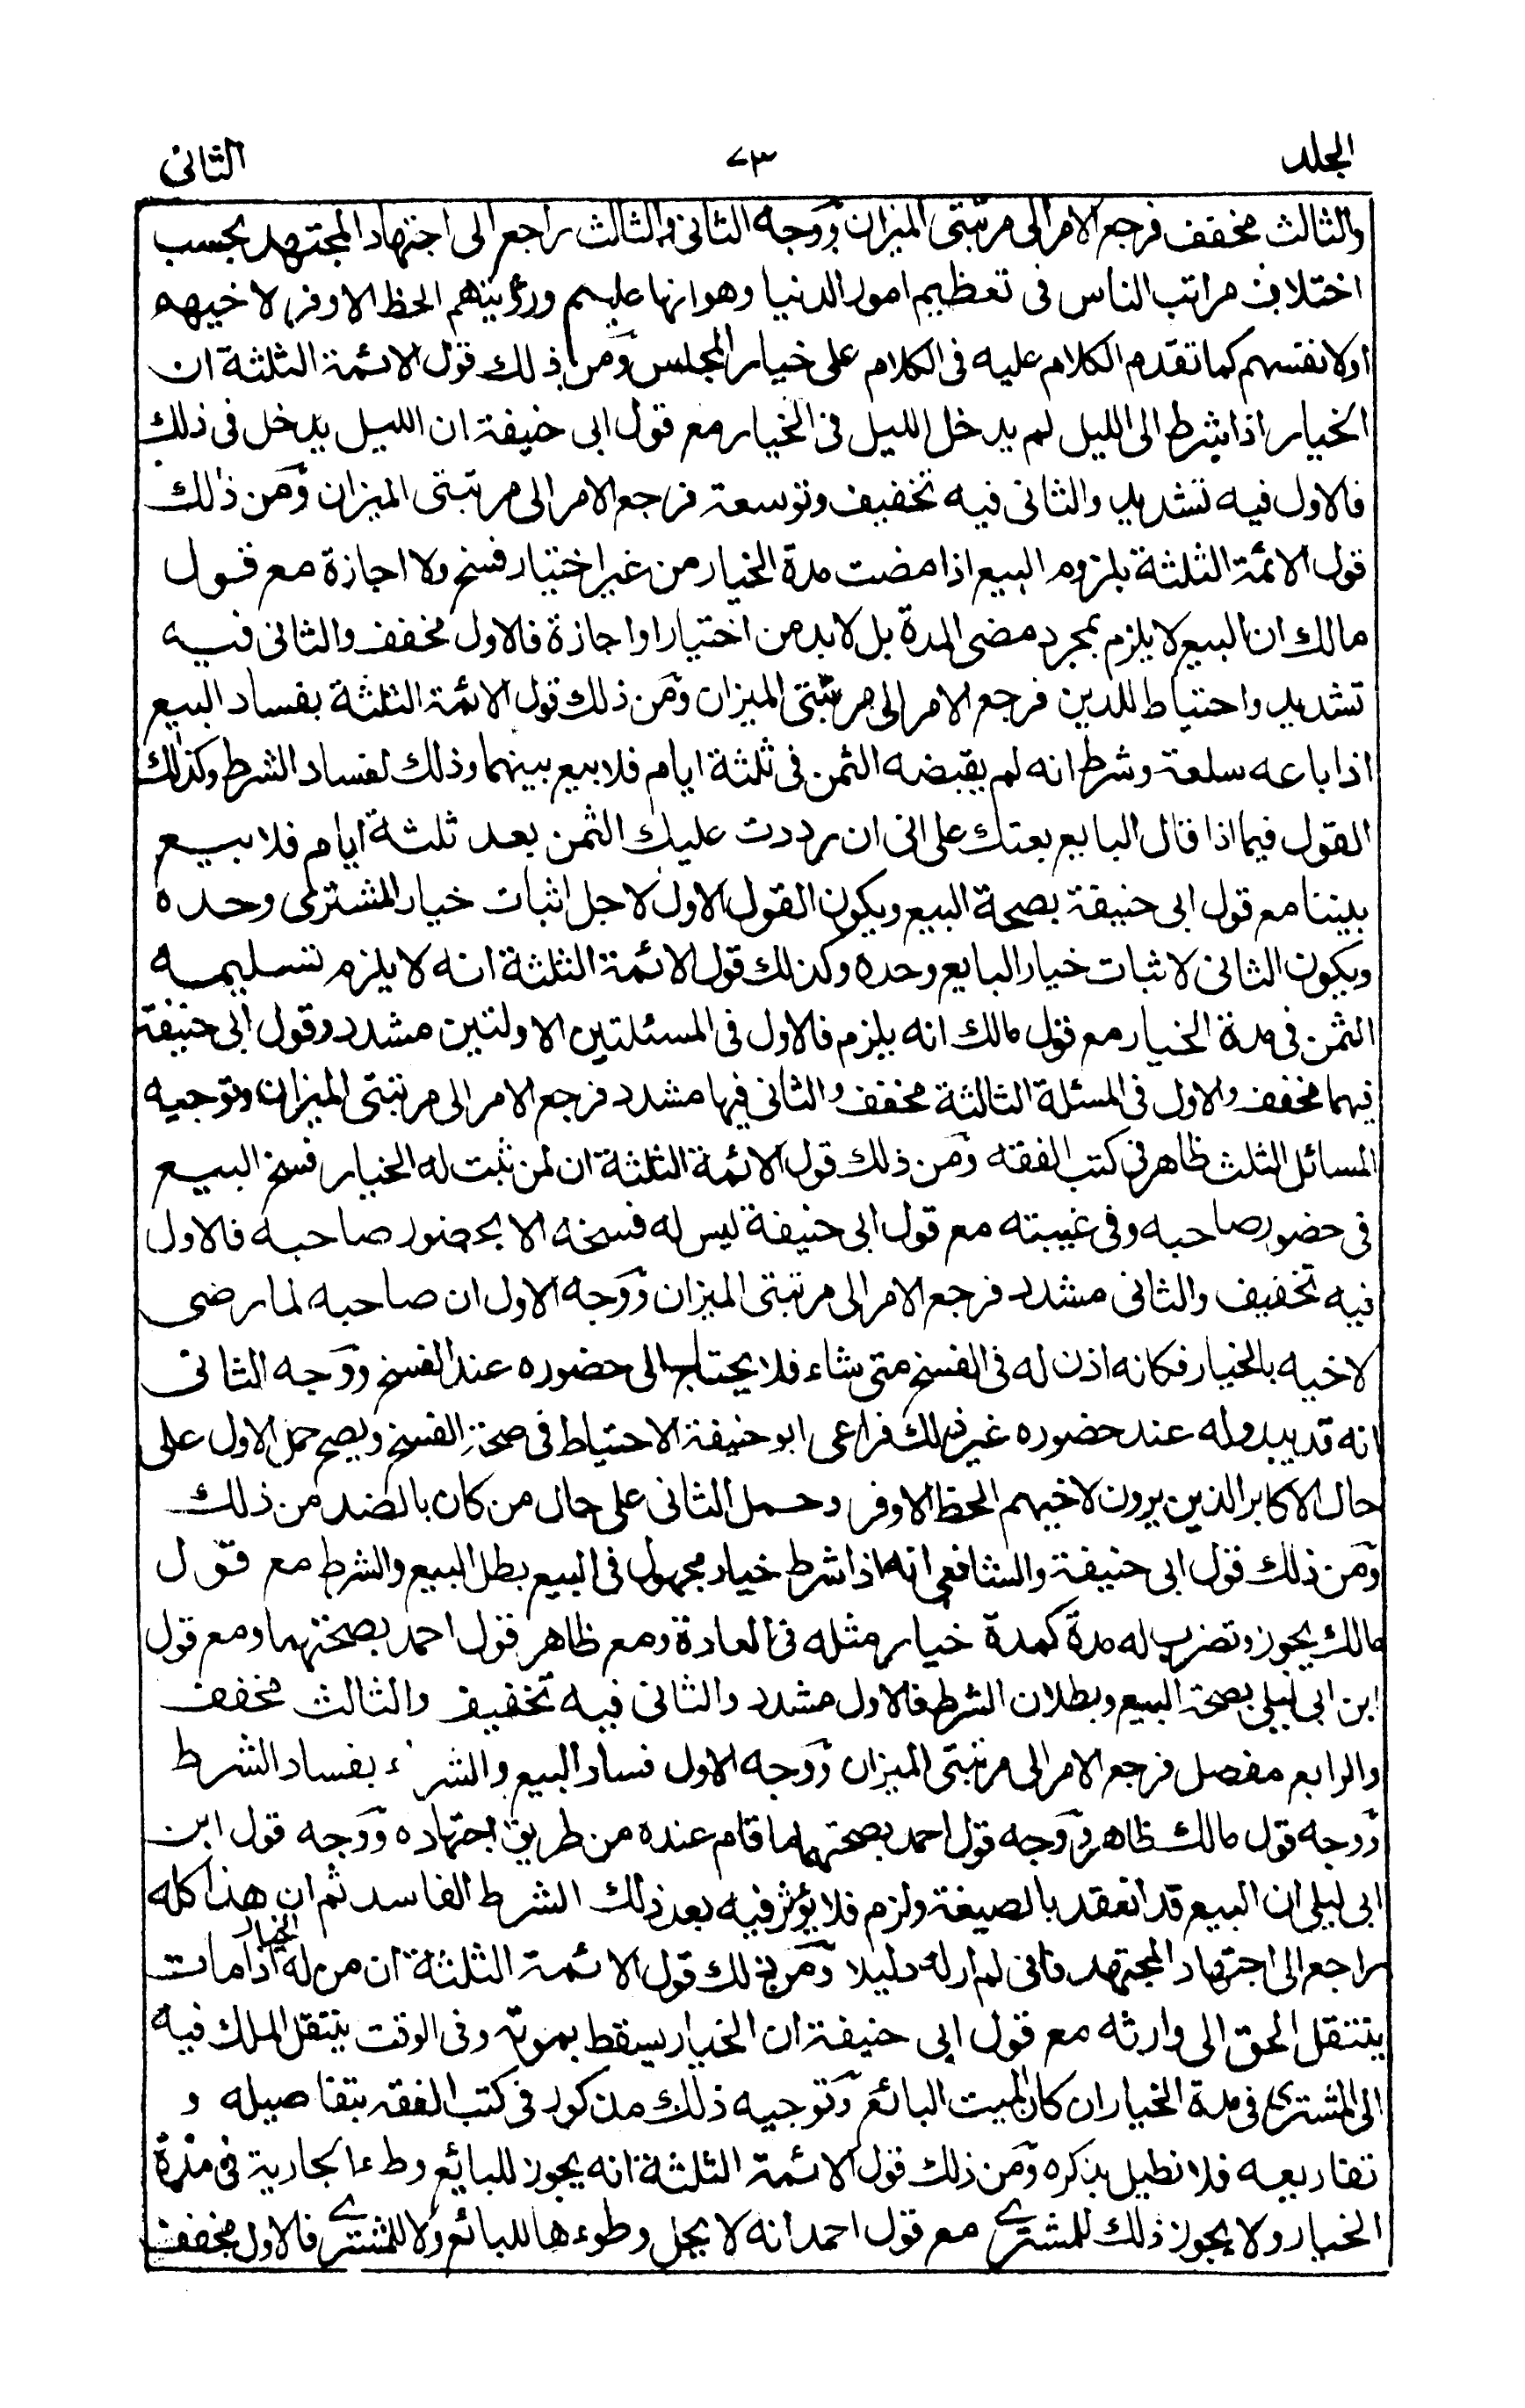 الجلد ٧٣ الثانى
والثالث مخفف فرجع الامر الى مرتبتى الميزان ووجه الثانى والثالث راجع الى اجتهاد المجتهد بحسب
اختلاف مراتب الناس فى تعظيم امور الدنيا وهوانها عليهم ورؤيتهم الحظ الاوفر لاخيهم
اولانفسهم كما تقدم الكلام عليه فى الكلام على خيار المجلس ومن ذلك قول الائمة الثلثة ان
الخيار اذا شرط الى الليل لم يدخل الليل فى الخيار مع قول ابى حنيفة ان الليل يدخل فى ذلك
فالاول فيه تشديد والثانى فيه تخفيف وتوسعة فرجع الامر الى مرتبتى الميزان ومن ذلك
قول الائمة الثلثة بلزوم البيع اذا مضت مدة الخيار من غير اختيار فسخ ولا اجازة مع قول
مالك ان البيع لا يلزم بمجرد مضى المدة بل لابد من اختيار او اجازة فالاول مخفف والثانى فيه
تشديد واحتياط للدين فرجع الامر الى مرتبتى الميزان ومن ذلك قول الائمة الثلثة بفساد البيع
اذا باعه سلعة وشرط انه لم يقبضه الثمن فى ثلثة ايام فلا بيع بينهما وذلك لفساد الشرط وكذلك
القول فيما اذا قال البايع بعتك على انى ان رددت عليك الثمن بعد ثلثة ايام فلا بيع
بيننا مع قول ابى حنيفة بصحة البيع ويكون القول الاول لاجل اثبات خيار المشترى وحده
ويكون الثانى لاثبات خيار البايع وحده وكذلك قول الائمة الثلثة انه لا يلزم تسليمه
الثمن فى مدة الخيار مع قول مالك انه يلزم فالاول فى المسئلتين الاولتين مشدد وقول ابى حنيفة
فيهما مخفف والاول فى المسئلة الثالثة مخفف والثانى فيها مشدد فرجع الامر الى مرتبتى الميزان وتوجيه
المسائل الثلث ظاهر فى كتب الفقه ومن ذلك قول الائمة الثلثة ان لمن ثبت له الخيار فسخ البيع
فى حضور صاحبه وفى غيبته مع قول ابى حنيفة ليس له فسخه الا بحضور صاحبه فالاول
فيه تخفيف والثانى مشدد فرجع الامر الى مرتبتى الميزان ووجه الاول ان صاحبه لما رضى
لاخيه بالخيار فكانه اذن له فى الفسخ متى شاء فلا يحتاج الى حضوره عند الفسخ ووجه الثانى
انه قد يبدو له عند حضوره غير ذلك فراعى ابو حنيفة الاحتياط فى صحة الفسخ ويصح حمل الاول على
حال الاكابر الذين يرون لاخيهم الحظ الاوفر وحمل الثانى على حال من كان بالضد من ذلك
ومن ذلك قول ابى حنيفة والشافعى انه اذا شرط خيار مجهول فى البيع بطل البيع والشرط مع قول
مالك يجوز وتضرب له مدة كمدة خيار مثله فى العادة ومع ظاهر قول احمد بصحتهما ومع قول
ابن ابى ليلى بصحة البيع وبطلان الشرط فالاول مشدد والثانى فيه تخفيف والثالث مخفف
والرابع مفصل فرجع الامر الى مرتبتى الميزان ووجه الاول فساد البيع والشرء بفساد الشرط
ووجه قول مالك ظاهر ووجه قول احمد بصحتهما ما قام عنده من طريق اجتهاده ووجه قول ابن
ابى ليلى ان البيع قد انعقد بالصيغة ولزم فلا يؤثر فيه بعد ذلك الشرط الفاسد ثم ان هذا كله
راجع الى اجتهاد المجتهد فانى لم ار له دليلا ومن ذلك قول الائمة الثلثة ان من له الخيار اذا مات
ينتقل الحق الى وارثه مع قول ابى حنيفة ان الخيار يسقط بموته وفى الوقت ينتقل الملك فيه
الى المشترى فى مدة الخيار ان كان الميت البائع وتوجيه ذلك مذكور فى كتب الفقه بتفاصيله و
تفاريعه فلا نطيل بذكره ومن ذلك قول الائمة الثلثة انه يجوز للبائع وطء الجارية فى مدة
الخيار ولا يجوز ذلك للمشترى مع قول احمد انه لا يحل وطوءها للبائع ولا للمشترى فالاول مخفف